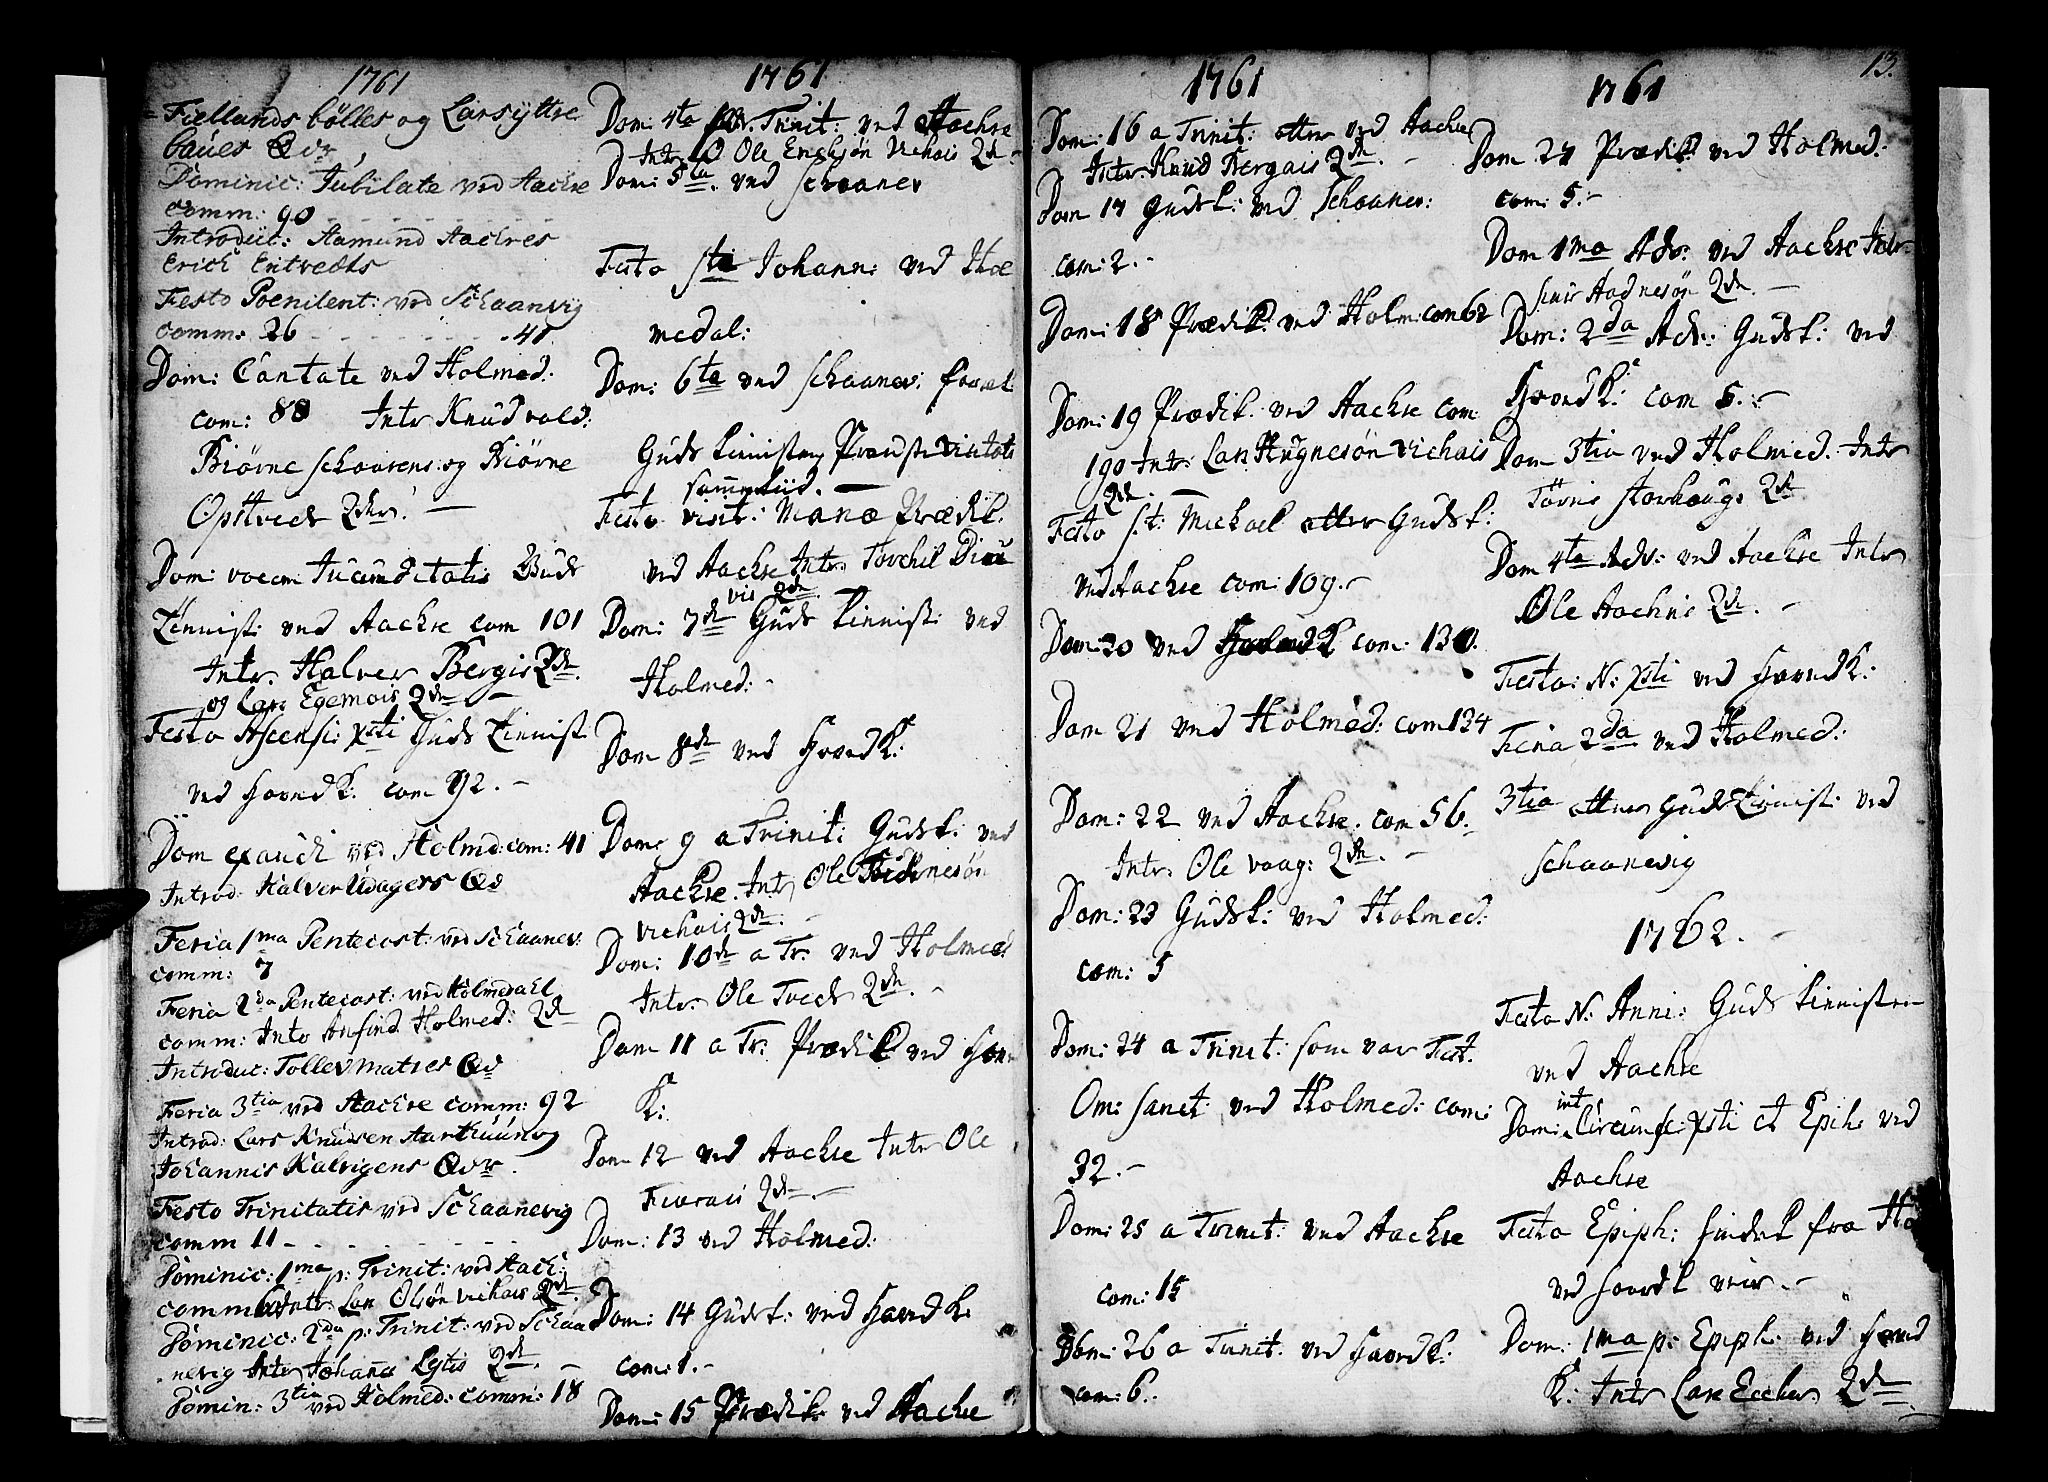 1761
Fiellands bölles og Larsÿttre
baües Qvr
Dominic: Jubilate ved Aachre
comm: 90
Introduct: Aamund Aachres
Erich Entvedts
Festo Poenitent: ved Schaanvig
comm: 26 - - - - 41
Dom: Cantate ved Holmed:
com: 88 Intr Knud vold:
Biörne schourens: og Biörne
Opstvedt 2dr:
Dom: vocem Jucunditatis Guds
Tiennist: ved Aachre com 101
Intr. Halver Bergis 2de.
og Lars Egemois 2de
Festo Ascensi: Xsti Guds Tiennist
ved Havndk: com 92. -
Dom exaudi ved Holmd: com: 41
Introd: Halver Udagers Qvr
Feria 1ma Pentecost: ved Schaanev:
comm: 7
Feria 2da Pentecost: ved Holmedahl
comm: Intr Anfind Holmed: 2de
Introduc: Tollev matres Qvr
Feria 3tia ved Aachre comm: 92
Introd: Lars Knudsen Aarthuun og
Johannis Kalvigens Qvr.
Festo Trinitatis ved Schaanevig
comm 11 - - - -
Dominic: 1ma p: Trinit: ved Aach:
comm Intr: Lars Olsön vichois 2de.
Dominic: 2da p: Trinit: ved Schaa
nevig Intr Johanes Lytis 2de. -
Domin: 3tia ved Holmed: comm: 18
1761
Dom: 4ta Trinit: ved Aachre
Intr Ole Erichsön Vichois 2de -
Dom: 5ta ved Schaanev
Festo Sti Johann: ved Hol
medal:
Dom: 6te ved Schaanev:
Guds tiennisten Prousti visitats
samme tiid. -
Festo visit: Mariæ Prædik.
ved Aachre Intr Torchil
vis 2de
Dom: 7de Guds tiennist: ved
Holmed: -
Dom 8de ved Havndk:
Dom: 9 a Trinit: Gudst: ved
Aachre. Intr Ole
vichois 2de: -
Dom: 10de a Tr. ved Holmed:
Intr. Ole Tvedt 2de. -
Dom 11 a Tr: Prædik ved Havn
K:
Dom 12 ved Aachre Intr Ole
Fiærais 2de -
Dom: 13 ved Holmed:
Dom: 14 Gudst: ved Havndk:
com: 1. -
Dom: 15 Prædik: ved Aachre
1761
Dom: 16 a Trinit: etter ved Aachre
Intr Knud Bergais 2de. -
Dom 17 Gudst: ved Schaanev:
com: 2. -
Dom: 18 Prædik: ved Holm: com 62
Dom: 19 Prædik: ved Aachre com
190 Intr: Lars Hugnesön vichois
2de. -
Festo St: Michael etter Gudst:
ved Aachre com: 109. -
Dom: 20 ved Havndk com: 130.
Dom 21 ved Holmed: com 134
Dom: 22 ved Aachre. com 56.
Intr: Ole vaag: 2de. -
Dom: 23 Gudst: ved Holmed:
com: 5
Dom: 24 a Trinit: som var Fest.
Om: Sanct: ved Holmed: com:
32. -
Dom: 25 a Trinit: ved Aachre
com: 15
Dom: 26 a Trinit: ved Havndk:
com: 6.
1761
13.
Dom 27 Prædik ved Holmed:
com: 5. -
Dom 1ma Adv: ved Aachre Intr
Aadnesön 2de. -
Dom: 2da Adv: Gudst: ved
Havndk: com 5. -
Dom 3tia ved Holmed. Intr
Törris storhaug: 2de
Dom 4ta Adv: ved Aachre Intr
Ole Aachris 2de. -
Festo: N: Xsti ved Havndk:
Feria 2da ved Holmed:
3tia etter Guds Tienist: ved
Schaanevig
1762. -
Festo N: Anni: Guds tiennisten
ved Aachre
Dom: int Circumsc: Xsti et Epiph: ved
Aachre
Festo Epiph: hindret fra Ho
ved haardt veir. -
Dom: 1ma p: Epiph: ved Havnd
K: Intr Lars Eccher 2de